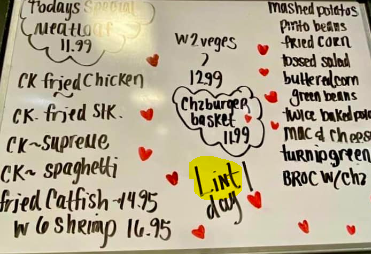 Todays Special
meatloaf
11.99
CK fried Chicken
CK. fried Stk.
CK~Supreme
CK~ spaghetti
fried Catfish - 14.95
w 6 Shrimp 16.95
w 2 veges
12.99
Chzburger
basket
11.99
Lint
day
mashed potatos
Pinto beans
fried corn
tossed salad
buttered corn
green beans
twice baked pota
mac & cheese
turnip green
BROC w/chz